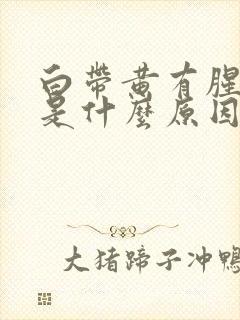 白帶黄有腥
是什麼原因
大猪蹄子冲鴨